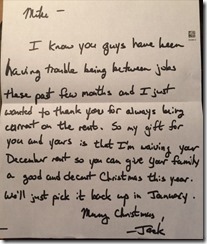 Mike —
I know you guys have been
having trouble being between jobs
these past few months and I just
wanted to thank you for always being
current on the rent. So my gift for
you and yours is that I'm waiving your
December rent so you can give your family
a good and decent Christmas this year.
We'll just pick it back up in January.
Merry Christmas,
—Jack